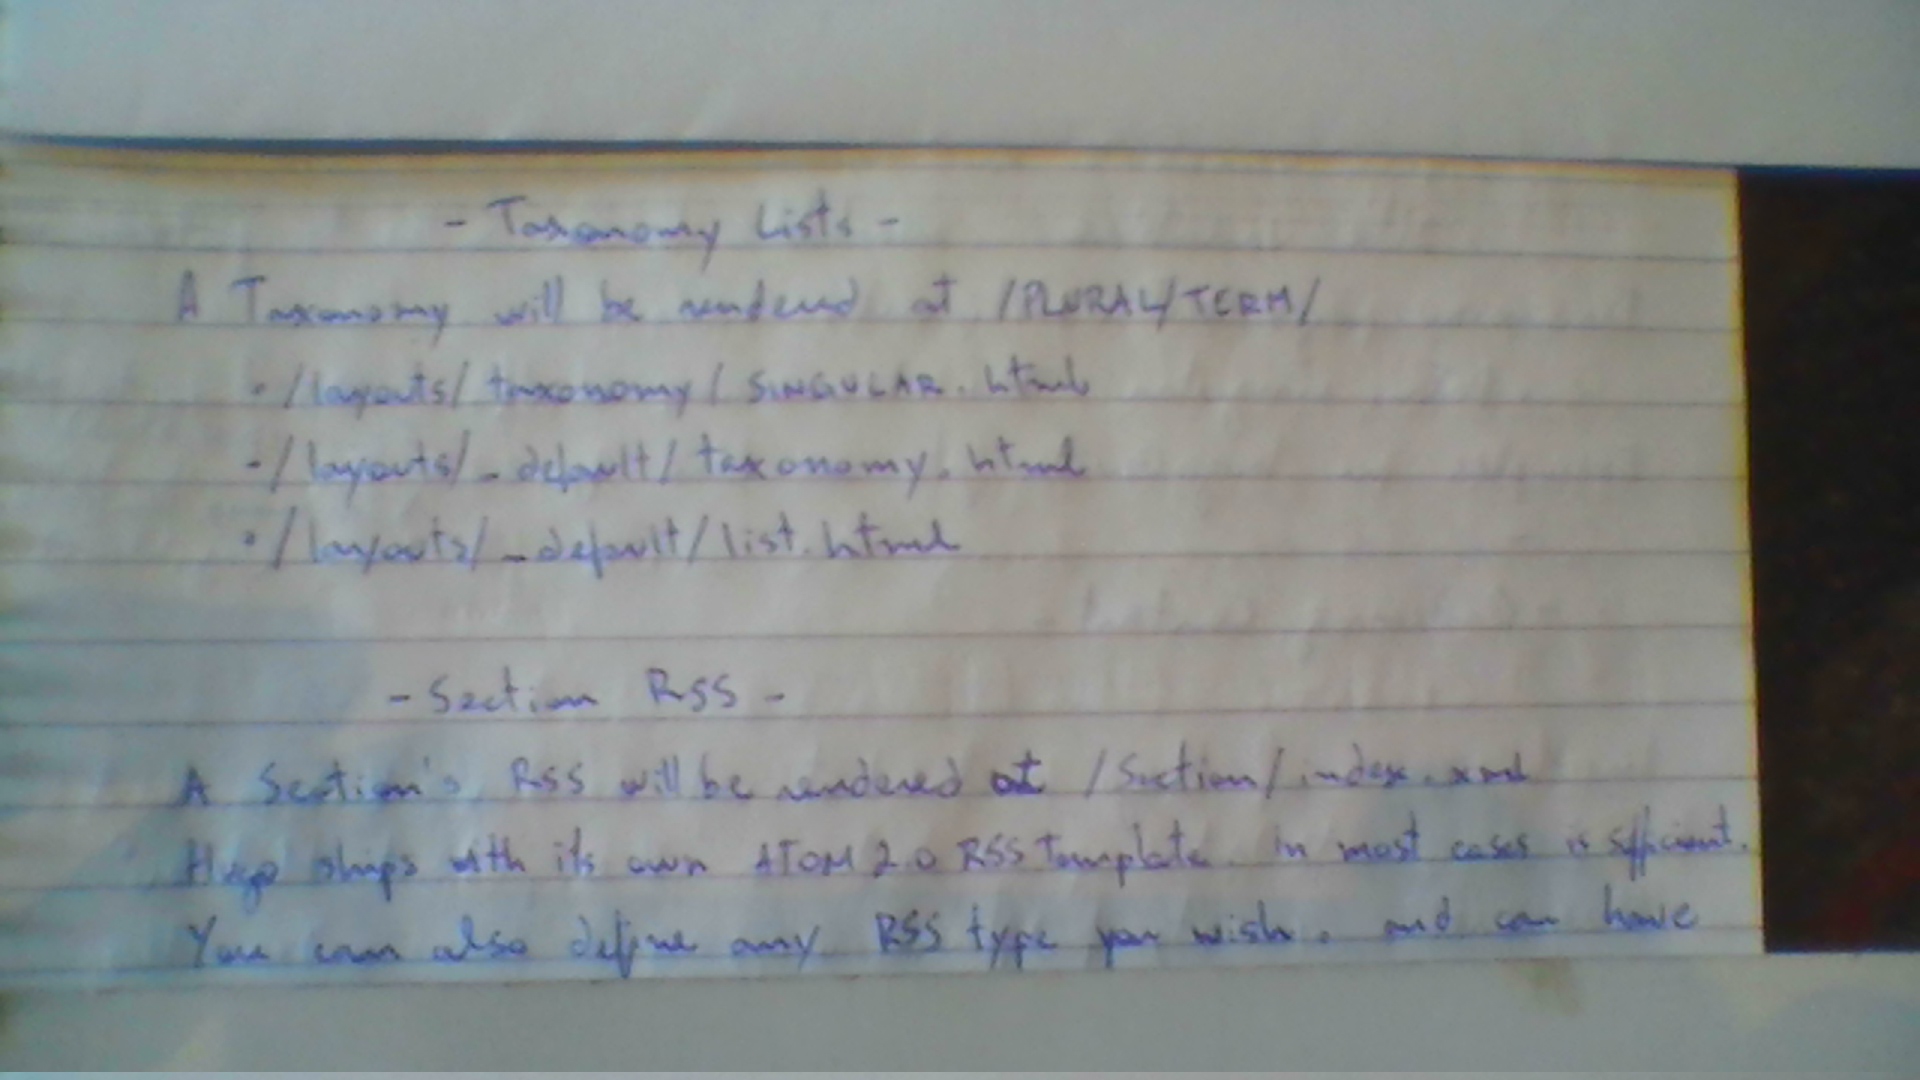 - Taxonomy Lists -
A Taxonomy will be rendered at /PLURAL/TERM/
· /layouts/taxonomy/SINGULAR.html
- /layouts/_default/taxonomy.html
· /layouts/_default/list.html
- Section RSS -
A Section's RSS will be rendered at /Section/index.xml
Hugo ships with its own ATOM 2.0 RSS Template. in most cases is sfficient.
You can also define any RSS type you wish. and can have